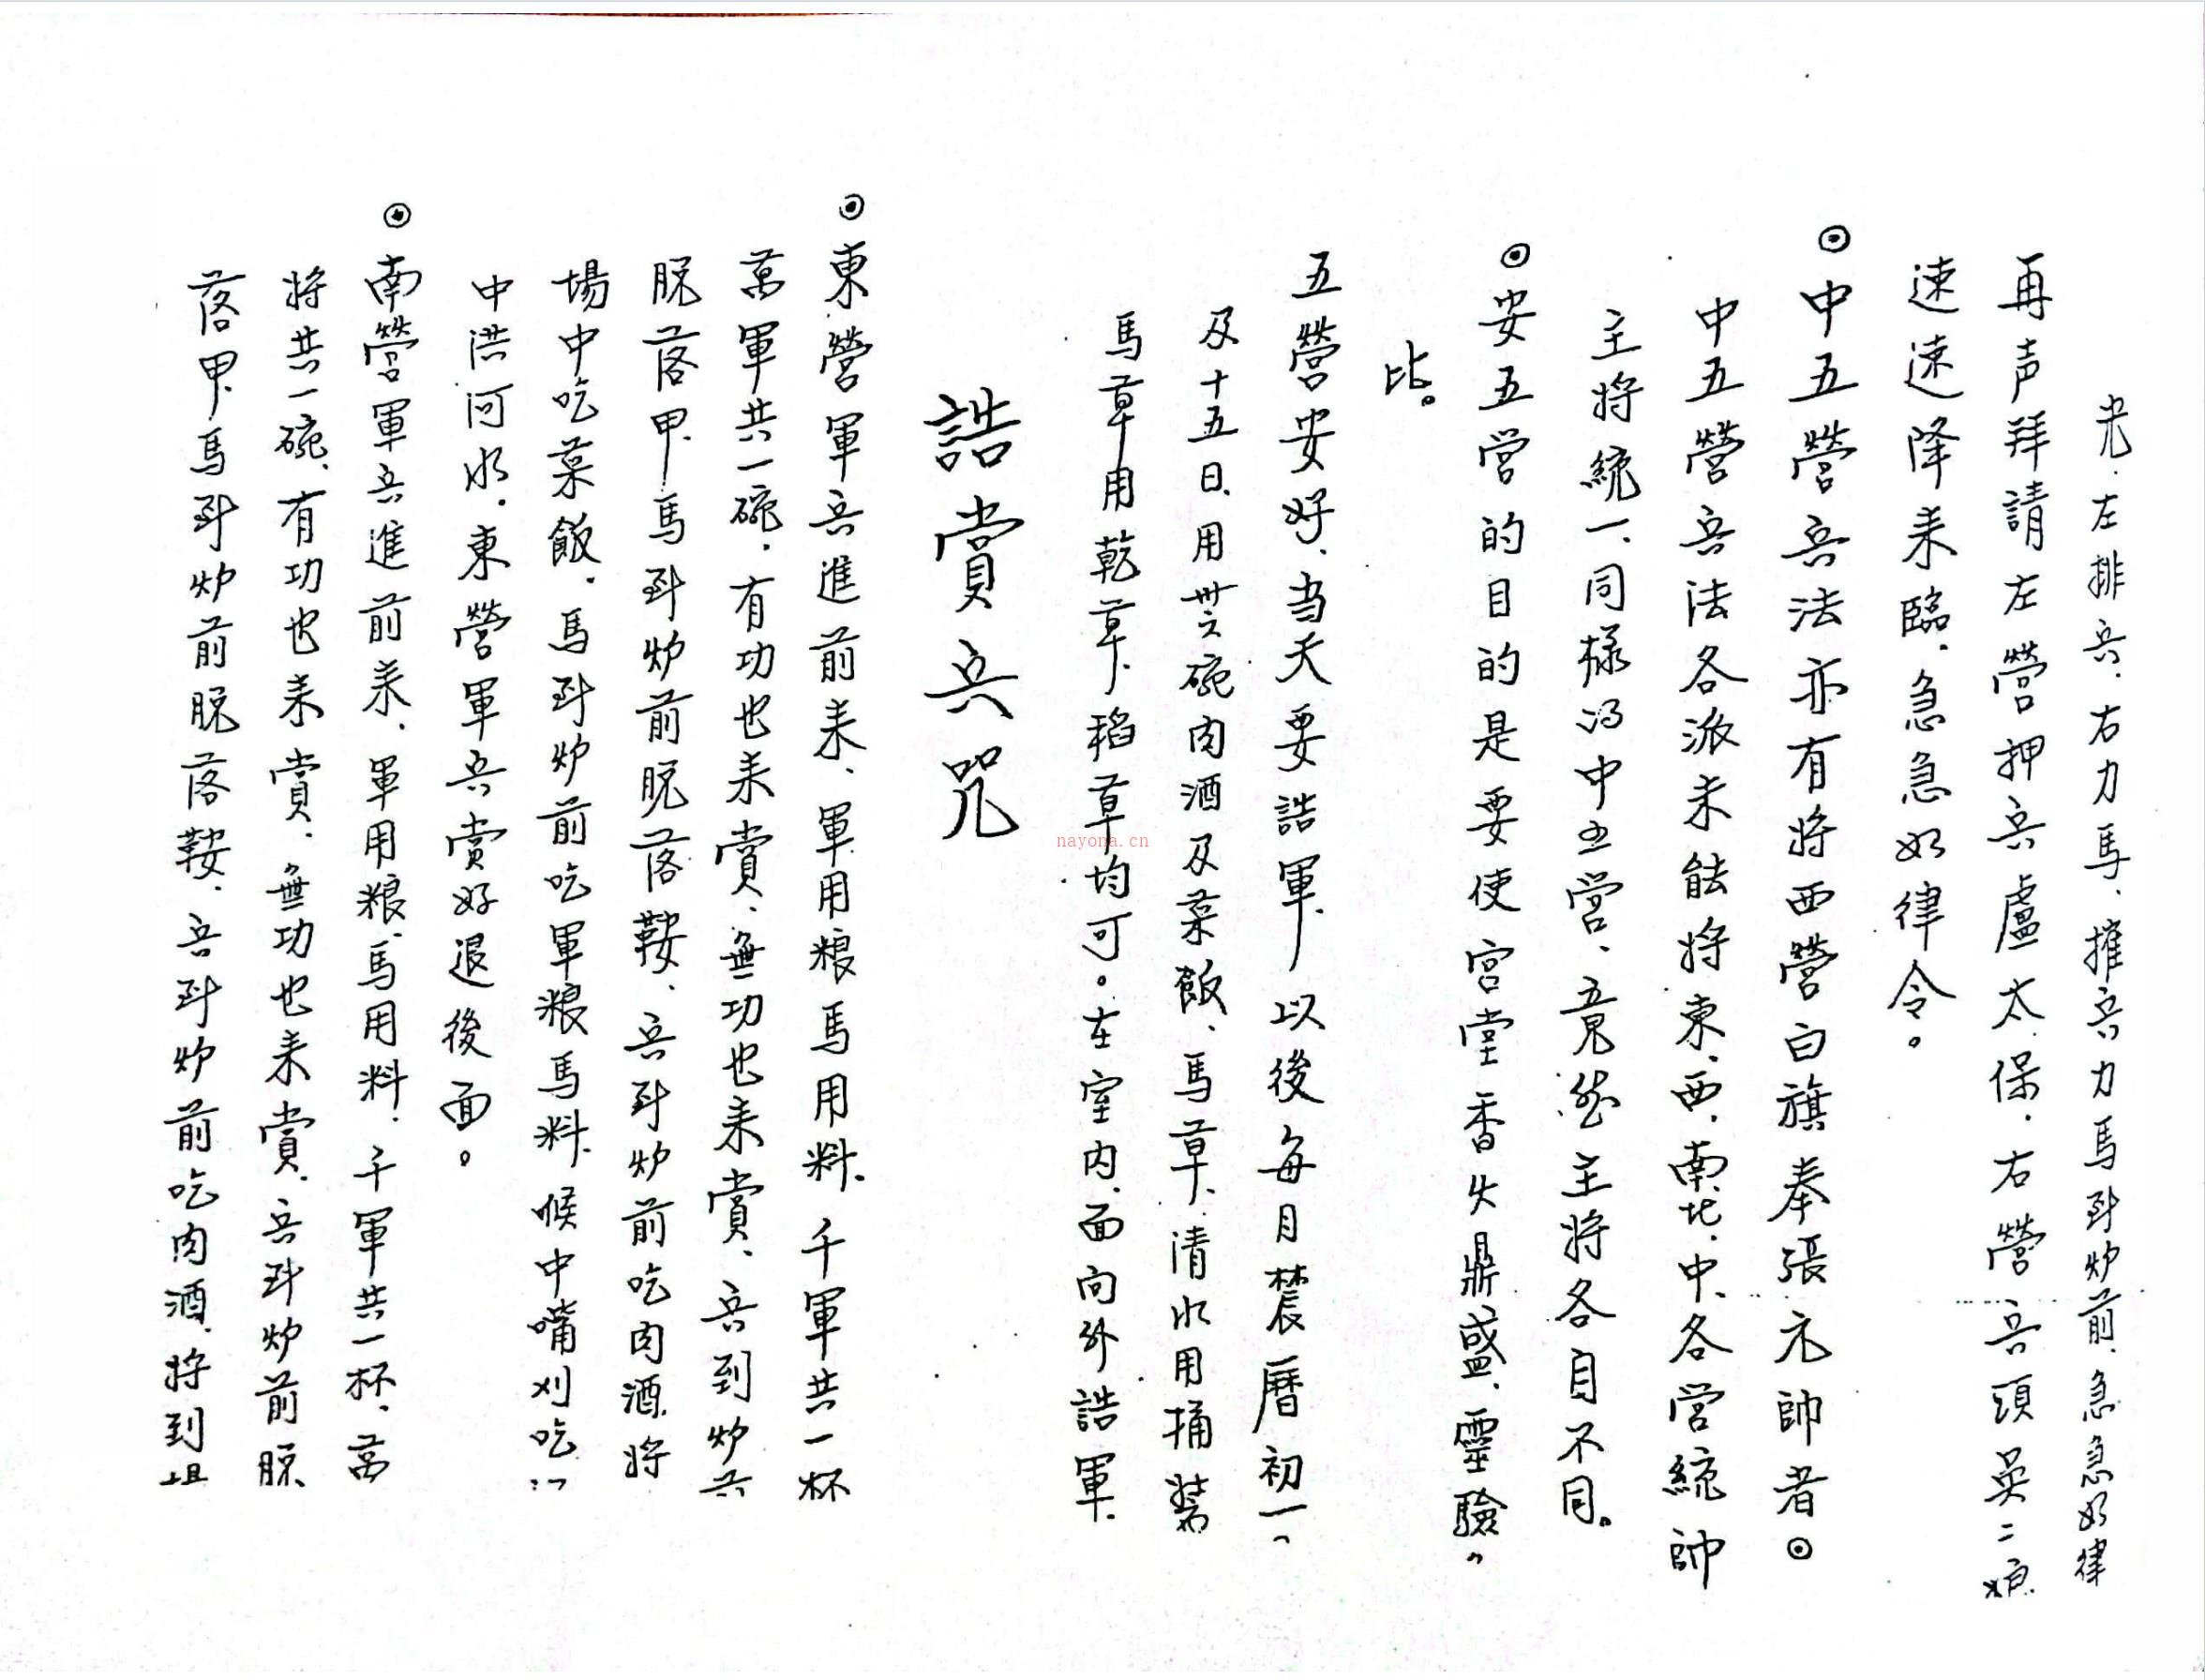 光.左排兵.右力馬、摧兵力馬到炉前.急急如律
再声拜請左營押兵盧太保.右營兵頭吳二娘
速速降耒臨.急急如律令。
◎中五營兵法亦有將西營白旗奉張元帥者◎
中五營兵法各派未能將東、西、南、北、中、各営統帥
主將統一、同樣為中五営、竟然主將各自不同。
◎安五営的目的是要使宮堂香火鼎盛、靈驗。
比。
五營安好、当天要誥軍.以後每月農曆初一、
及十五日.用卅六碗肉酒及菜飯、馬草、清水用捅裝
馬草用乾草、稻草均可。在室內、面向外誥軍.
誥賞兵咒
◎東營軍兵進前耒、軍用粮馬用料.千軍共一杯
萬軍共一碗.有功也耒賞、無功也耒賞、兵到炉
脫落甲.馬到炉前脫落鞍、兵到炉前吃肉酒.將
場中吃菜飯.馬到炉前吃軍粮馬料.候中嘴刈吃
中洪河水.東營軍兵賞好退後面。
◎南營軍兵進前耒、軍用粮.馬用料.千軍共一杯、萬
將共一碗、有功也耒賞、無功也耒賞、兵到炉前脫
落甲.馬到炉前脫落鞍、兵到炉前吃肉酒.將到
nayona.cn